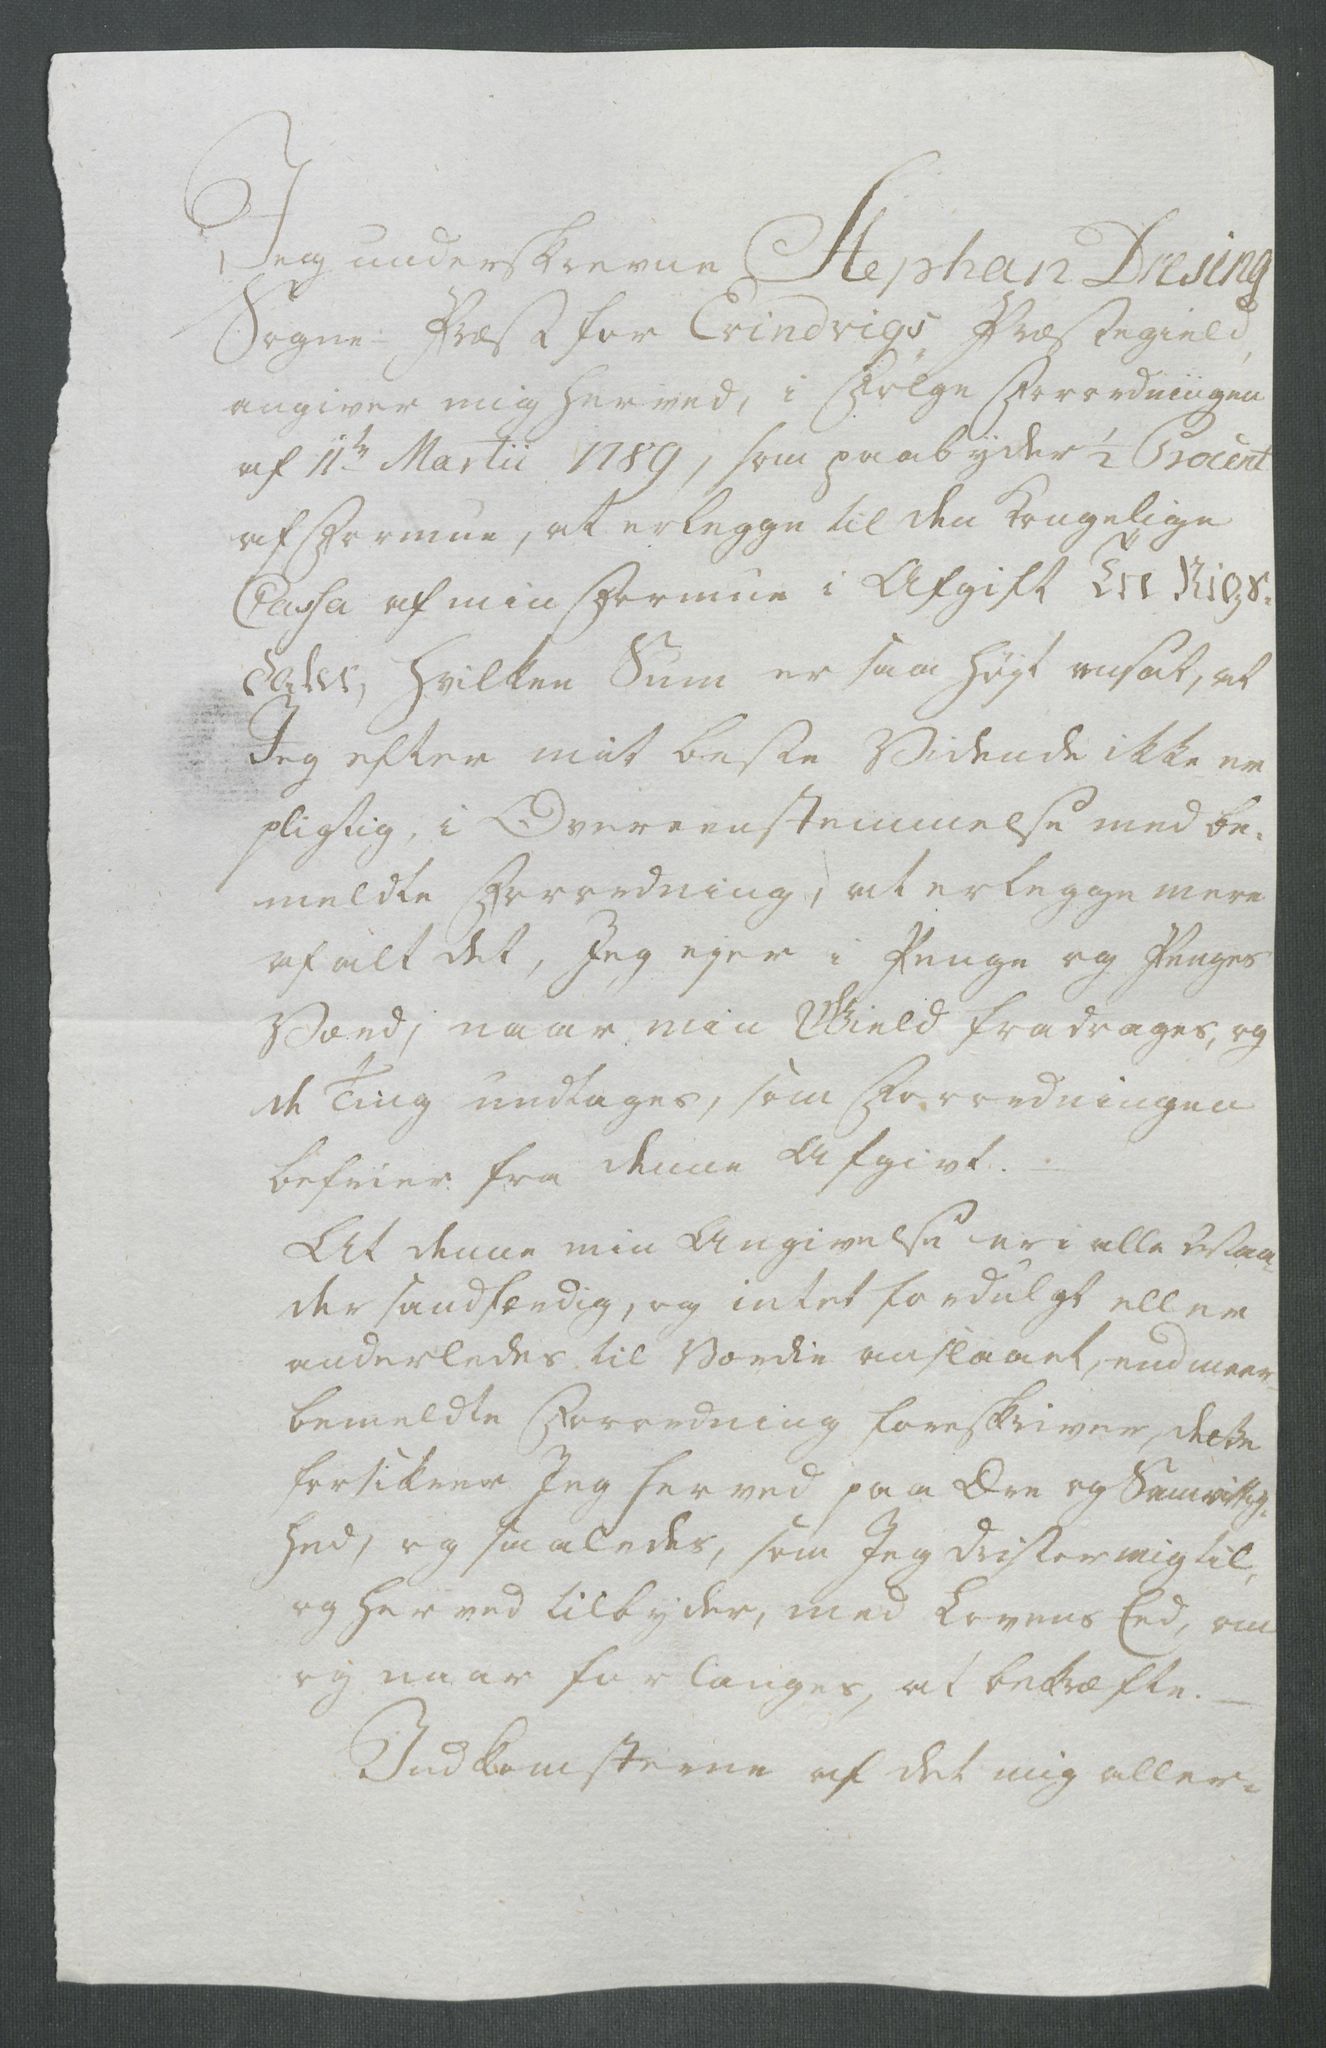 Jeg underskrevne Stephan Dresing
Sogne-Præst for Erindrigs Præstegield,
angiver mig herved, i Følge Forordningen
af 11te Martii 1789, som paabyder ½ Procent
af Formue, at erlegge til den Kongelige
Cassa af min Formue i Afgift En Rigs-
daler, hvilken Sum er saa høyt ansat, at
Jeg efter mit beste Vidende ikke er
pligtig, i Overeenstemmelse med be-
meldte Forordning, at erlegge mere
af alt det, Jeg ejer i Penge og Penges
Værd, naar min Gield fradrages, og
de Ting undtages, som Forordningen
befrier fra denne Afgivt. —
At denne min Angivelse er i alle Maa-
der sandfærdig, og intet fordulgt eller
anderledes til Værdie anslaaet, end meer-
bemeldte Forordning foreskriver, dette
forsikrer Jeg herved paa Ære og Samvittig-
hed, og saaledes, som Jeg drister mig til,
og herved tilbyder, med Lovens Eed, om
og naar forlanges, at bekræfte. —
Indkomsterne af det mig aller-